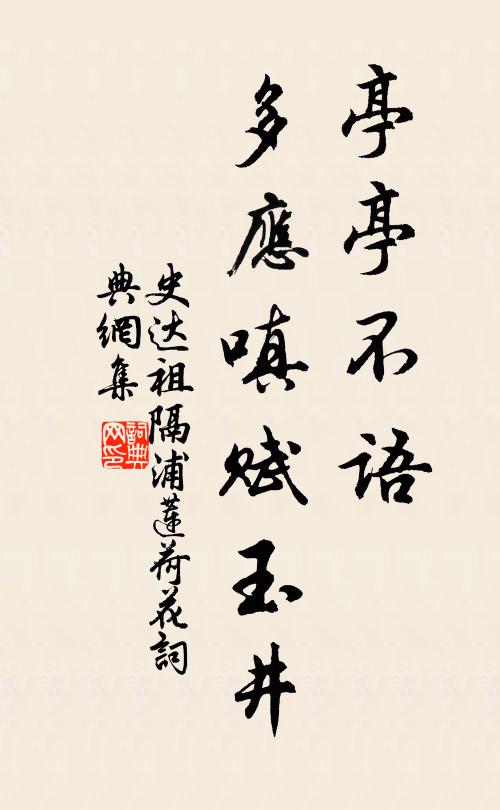 亭亭不语
多應嗔赋玉井
史达祖隔浦蓮荷花詞
典網集
詞典
网印